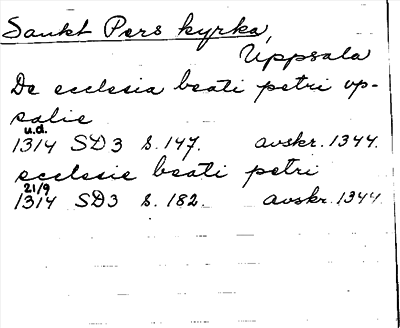 Sankt Pers kyrka,
Uppsala
De ecclesia beati petri up-
salie
u.d.
1314 SD 3 s. 147. avskr. 1344.
ecclesie beati petri
21/9
1314 SD3 s. 182. avskr. 1344